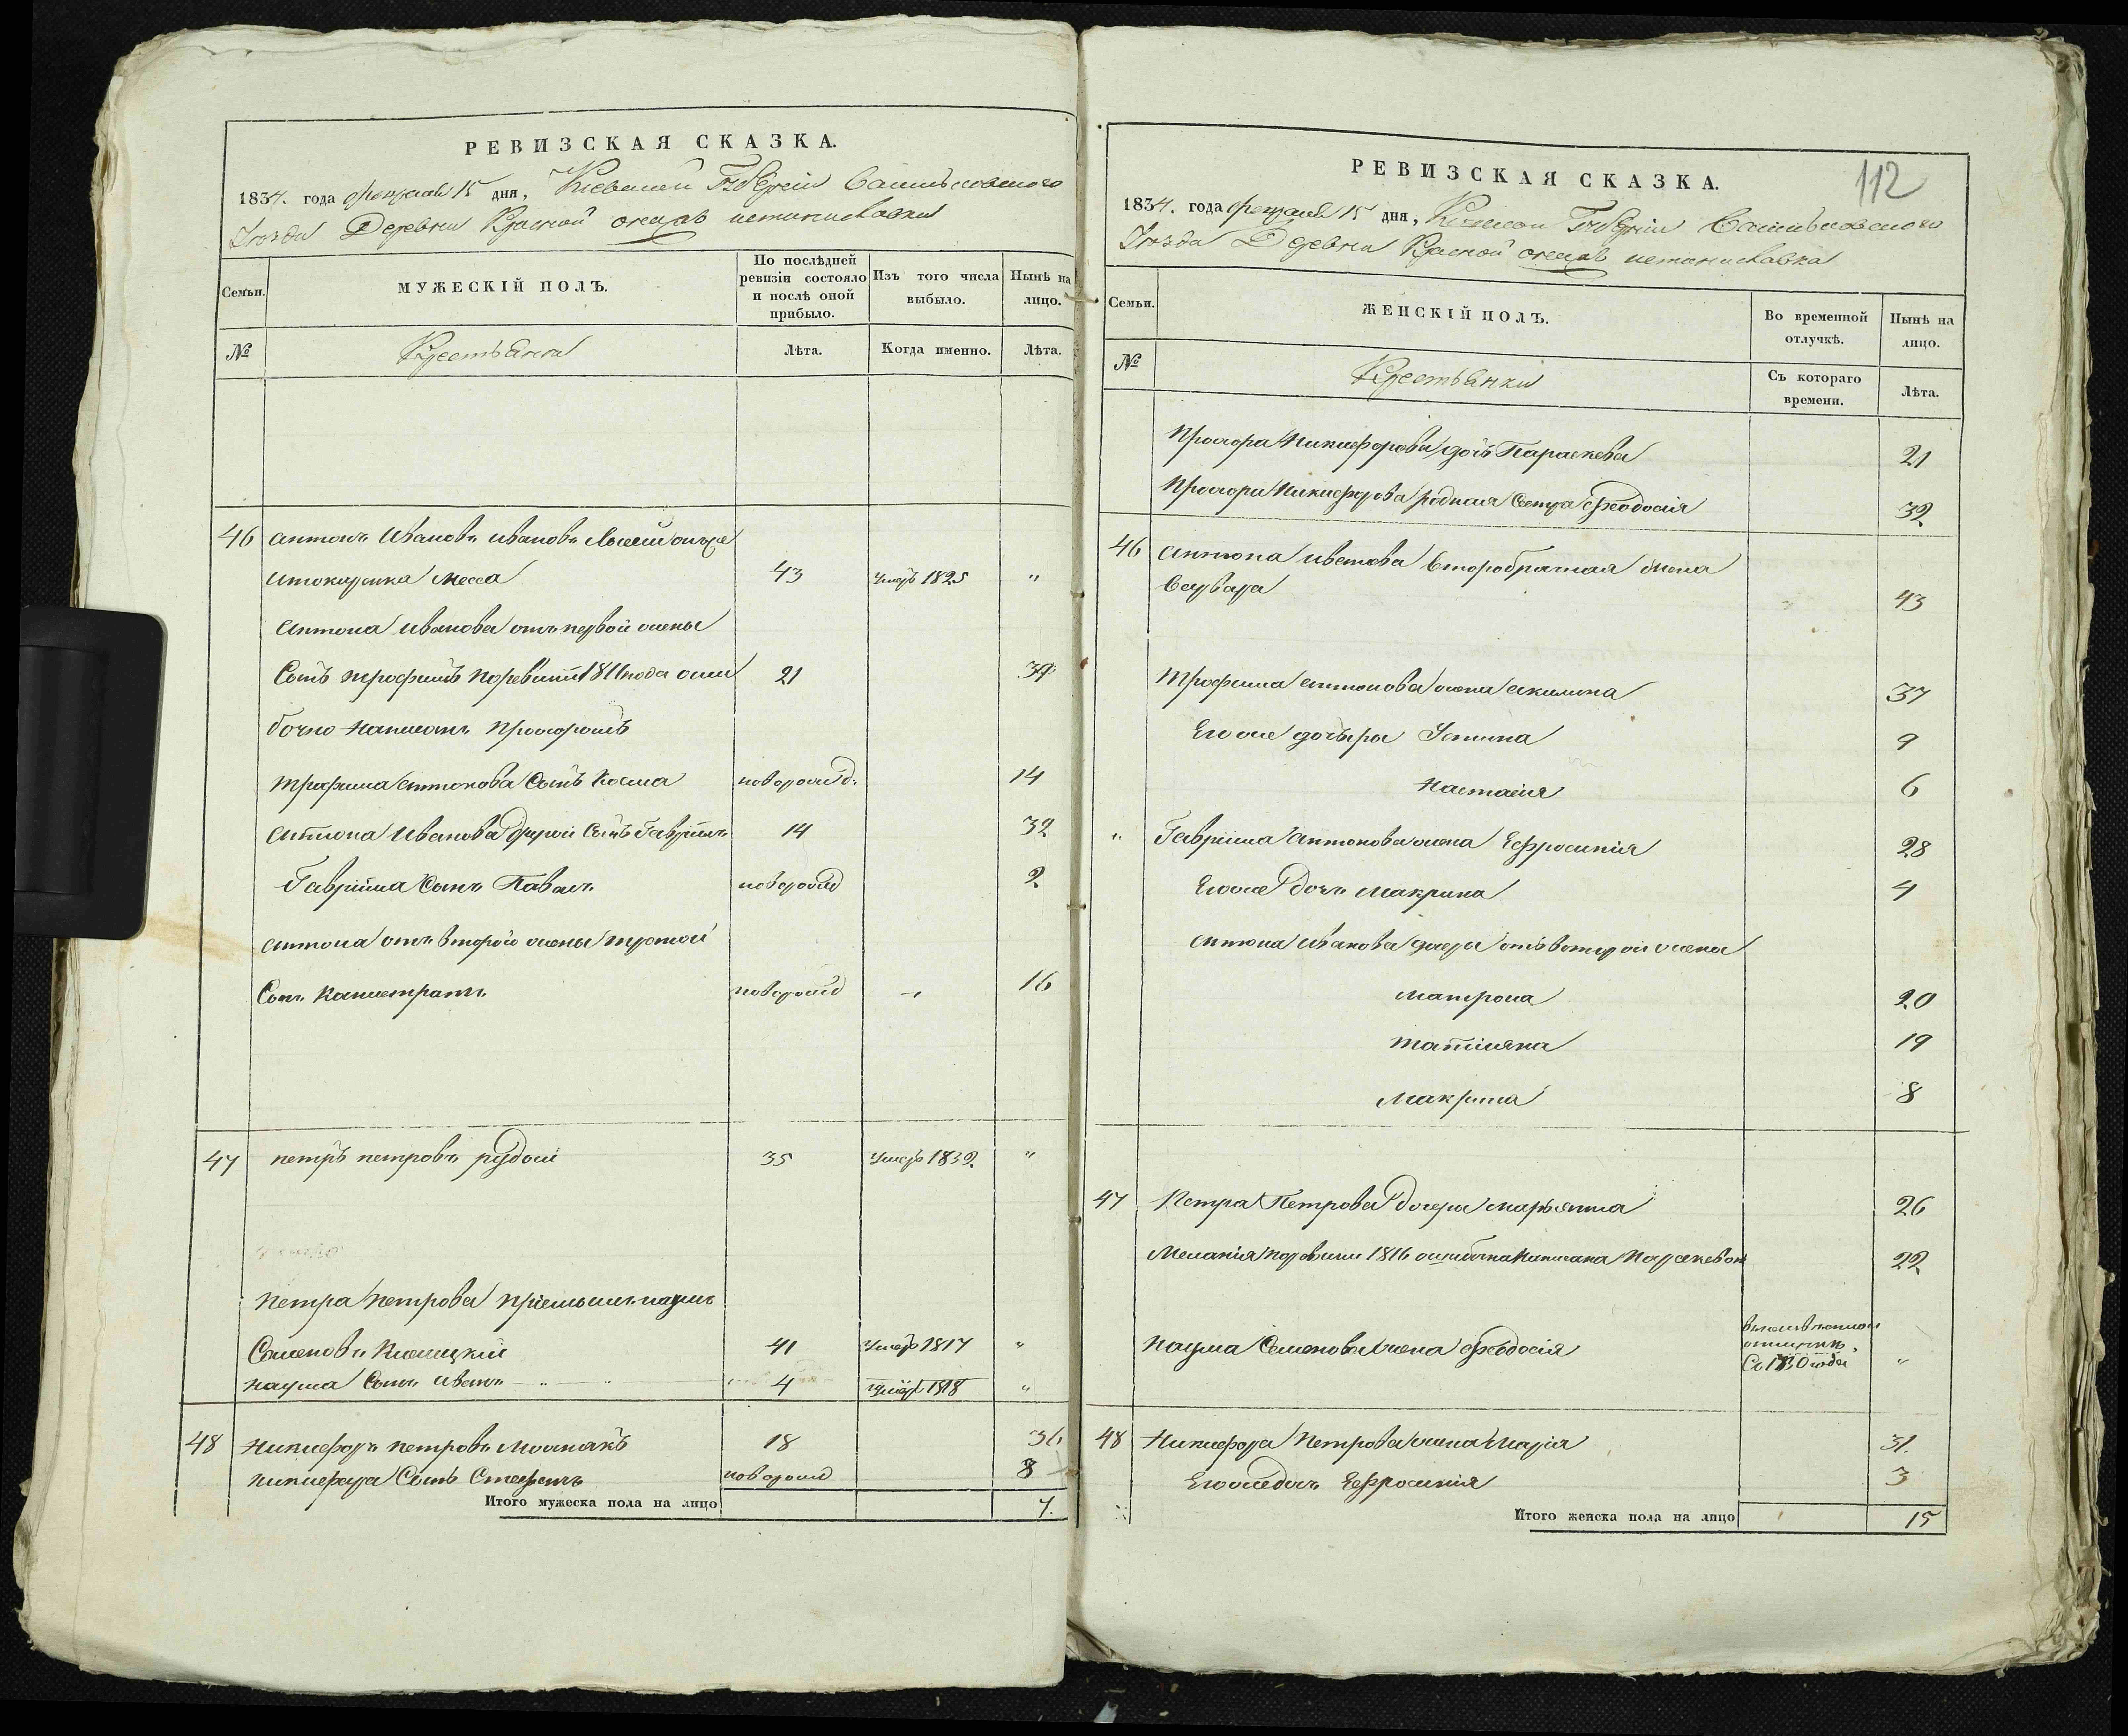 РЕВИЗСКАЯ СКАЗКА.
1834. года февраля 15 дня, Кіевской Губерніи Васильковского
Уезда Деревни Красной онажъ
Семьи.
МУЖЕСКІЙ ПОЛЪ.
По послѣдней ревизіи состояло и послѣ оной прибыло.
Изъ того числа выбыло.
Нынѣ на лицо.
№
Крестьяна
Лѣта.
Когда именно.
Лѣта.
46 Антонъ Ивановъ Ивановъ
43 умеръ 1825 "
Антона Иванова отъ первой жены
Сынъ Трофимъ по ревизіи 1816 года оши 21 39
бочно написанъ Прохоромъ
Трофима Антонова Сынъ Косма новорожд. 14
Антона Иванова Другой Сынъ Гавріилъ 14 32
Гавріила Сынъ Павелъ новорожд 2
Антона отъ второй жены третой
Сынъ Калистратъ новорожд 16
47 Петръ Петровъ рудой 35 умеръ 1832 "
Петра Петрова пріемышъ Наумъ
Семеновъ 41 умеръ 1817 "
Наума Сынъ Иванъ 4 умеръ 1818 "
48 Никифоръ Петровъ 18 36
Никифора Сынъ Стефанъ новорожд 8
Итого мужеска пола на лицо 7.
РЕВИЗСКАЯ СКАЗКА.
112
1834. года февраля 15 дня, Кіевской Губерніи Васильковского
Уезда Деревни Красной онажъ
Семьи.
ЖЕНСКІЙ ПОЛЪ.
Во временной отлучкѣ.
Нынѣ на лицо.
№
Крестьянки
Съ котораго времени.
Лѣта.
Прохора Никифорова дочь Параскева 21
Прохора Никифорова родная Сестра Феодосія 32
46 Антона Иванова второбрачная жена
Варвара 43
Трофима Антонова жена Акилина 37
Егоже дочьры Устина 9
Настасія 6
" Гавріила Антонова жена Ефросинія 28
Егоже дочь Макрина 4
Антона Иванова дочери отъ второй жены
Матрона 20
Татіяна 19
Макрина 8
47 Петра Петрова дочери Марьянна 26
Меланія по ревизіи 1816 ошибочна написана Параскевою 22
Наума Семенова жена Феодосія
Съ 1830 года "
48 Никифора Петрова жена Марія 31.
Егоже дочь Ефросинія 3
Итого женска пола на лицо 15